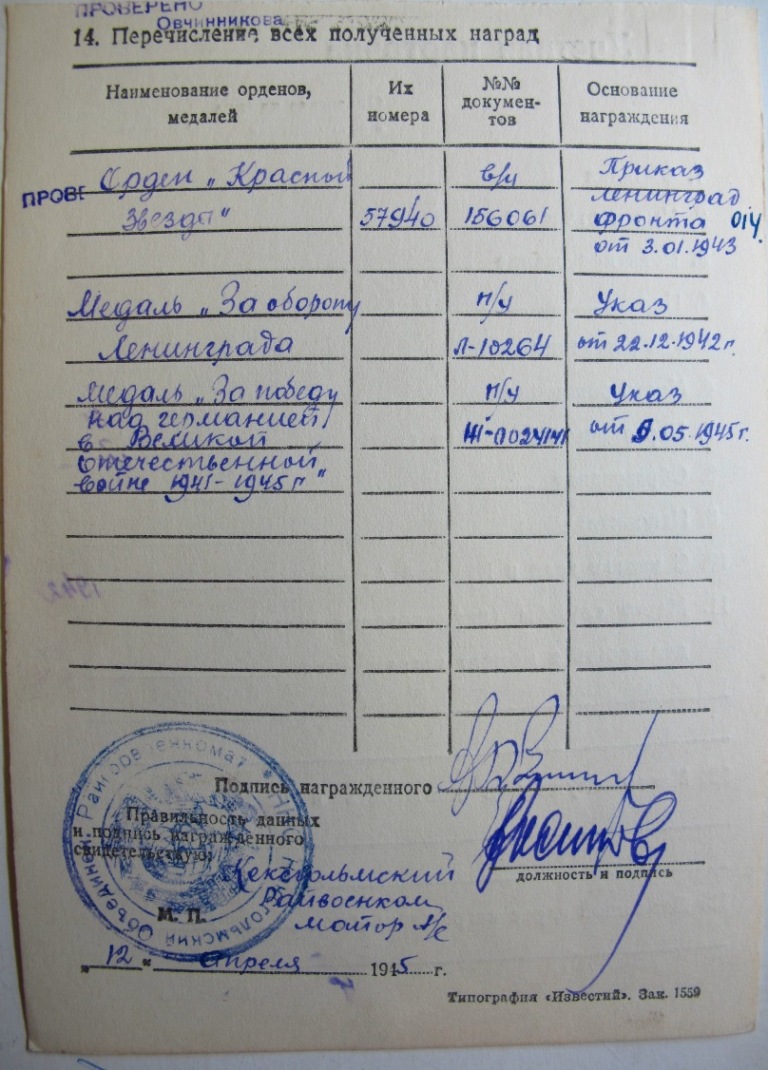 ПРОВЕРЕНО
Овчинникова
14. Перечисление всех полученных наград
Наименование орденов, медалей
Их номера
№№ докумен-тов
Основание награждения
ПРОВЕ
Орден „Красный
в/ч
Приказ
Ленинград
Звезда"
57940
156061
фронта
014.
от 3.01.1943
Медаль „За оборону
п/у
Указ
Ленинграда
Л-10264
от 22.12.1942 г.
Медаль „За победу
п/у
Указ
над германией
в Великой
от 9.05.1945 г.
Отечественной
войне 1941-1945 г"
Подпись награжденного
Правильность данных
и подпись награжденного
свидетельствую:
Кексгольмский
Райвоенком
майор А/с
должность и подпись
М. П.
„ 12 " Апреля 1945 г.
Типография «Известий». Зак. 1559